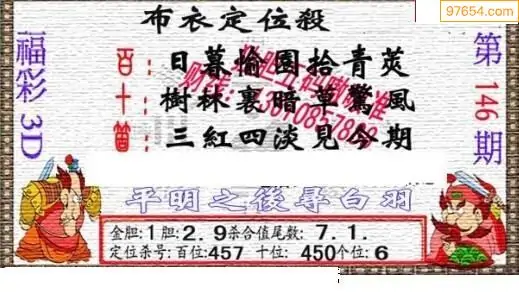 97654.com
布衣定位殺
福彩3D
第146期
百：日暮愉園拾青莢
十：樹林裏暗草驚風
箇：三紅四淡見今期
平明之後尋白羽
金胆:1胆:2.9杀合值尾数:7.1.
定位杀号:百位:457 十位:450个位:6